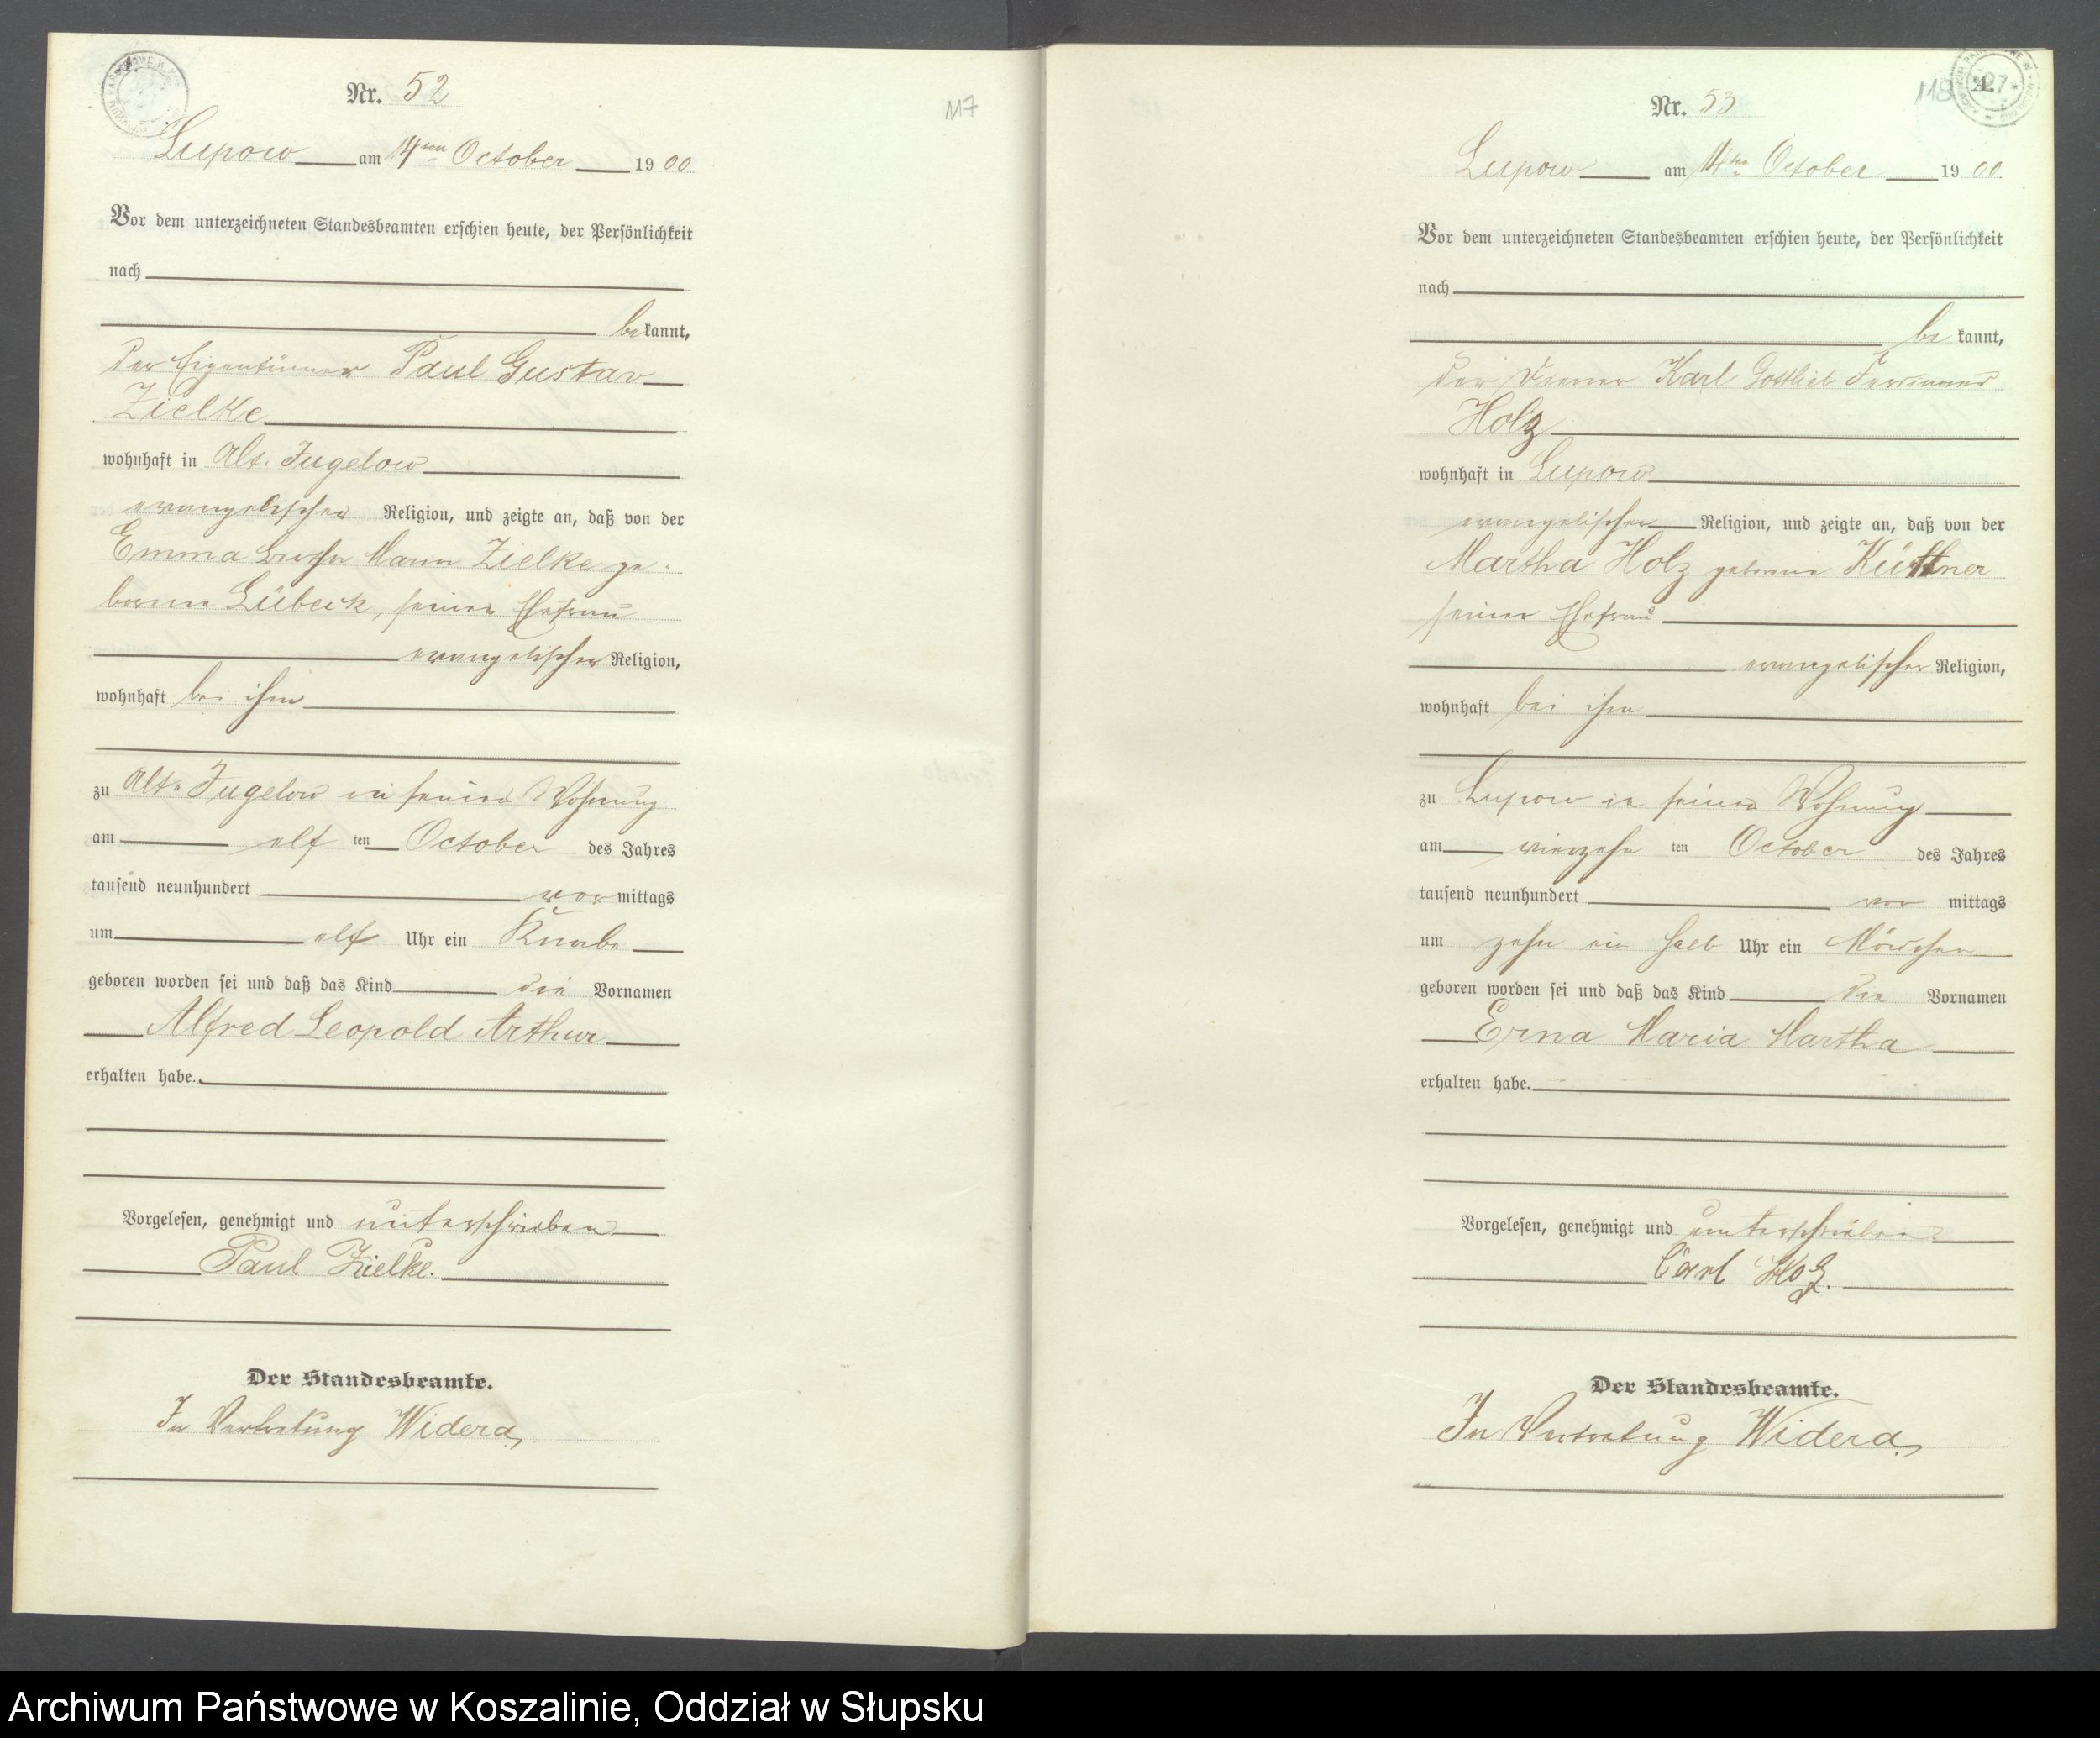 A.
Nr. 52
117
Lupow am 14ten October 1900
Vor dem unterzeichneten Standesbeamten erschien heute, der Persönlichkeit
nach
bekannt,
der Eigentümer Paul Gustav
Zielke
wohnhaft in Alt. Jugelow
evangelischer Religion, und zeigte an, daß von der
Emma Maria Zielke ge-
borene Lübeck, seiner Ehefrau
evangelischer Religion,
wohnhaft bei ihm
zu Alt. Jugelow in seiner Wohnung
am elf ten October des Jahres
tausend neunhundert vor mittags
um elf Uhr ein Knabe
geboren worden sei und daß das Kind die Vornamen
Alfred Leopold Arthur
erhalten habe.
Vorgelesen, genehmigt und unterschrieben
Paul Zielke.
Der Standesbeamte.
In Vertretung Widera
118
A.
Nr. 53
Lupow am ten October 1900
Vor dem unterzeichneten Standesbeamten erschien heute, der Persönlichkeit
nach
be kannt,
der Diener Karl Gottlieb Ferdinand
Holz
wohnhaft in Lupow
evangelischer Religion, und zeigte an, daß von der
Martha Holz geborene Küttner
seiner Ehefrau
evangelischer Religion,
wohnhaft bei ihm
zu Lupow in seiner Wohnung
am vierzehn ten October des Jahres
tausend neunhundert vor mittags
um zehn ein halb Uhr ein Mädchen
geboren worden sei und daß das Kind die Vornamen
Erna Maria Martha
erhalten habe.
Vorgelesen, genehmigt und unterschrieben
Carl Holz.
Der Standesbeamte.
In Vertretung Widera
Archiwum Państwowe w Koszalinie, Oddział w Słupsku